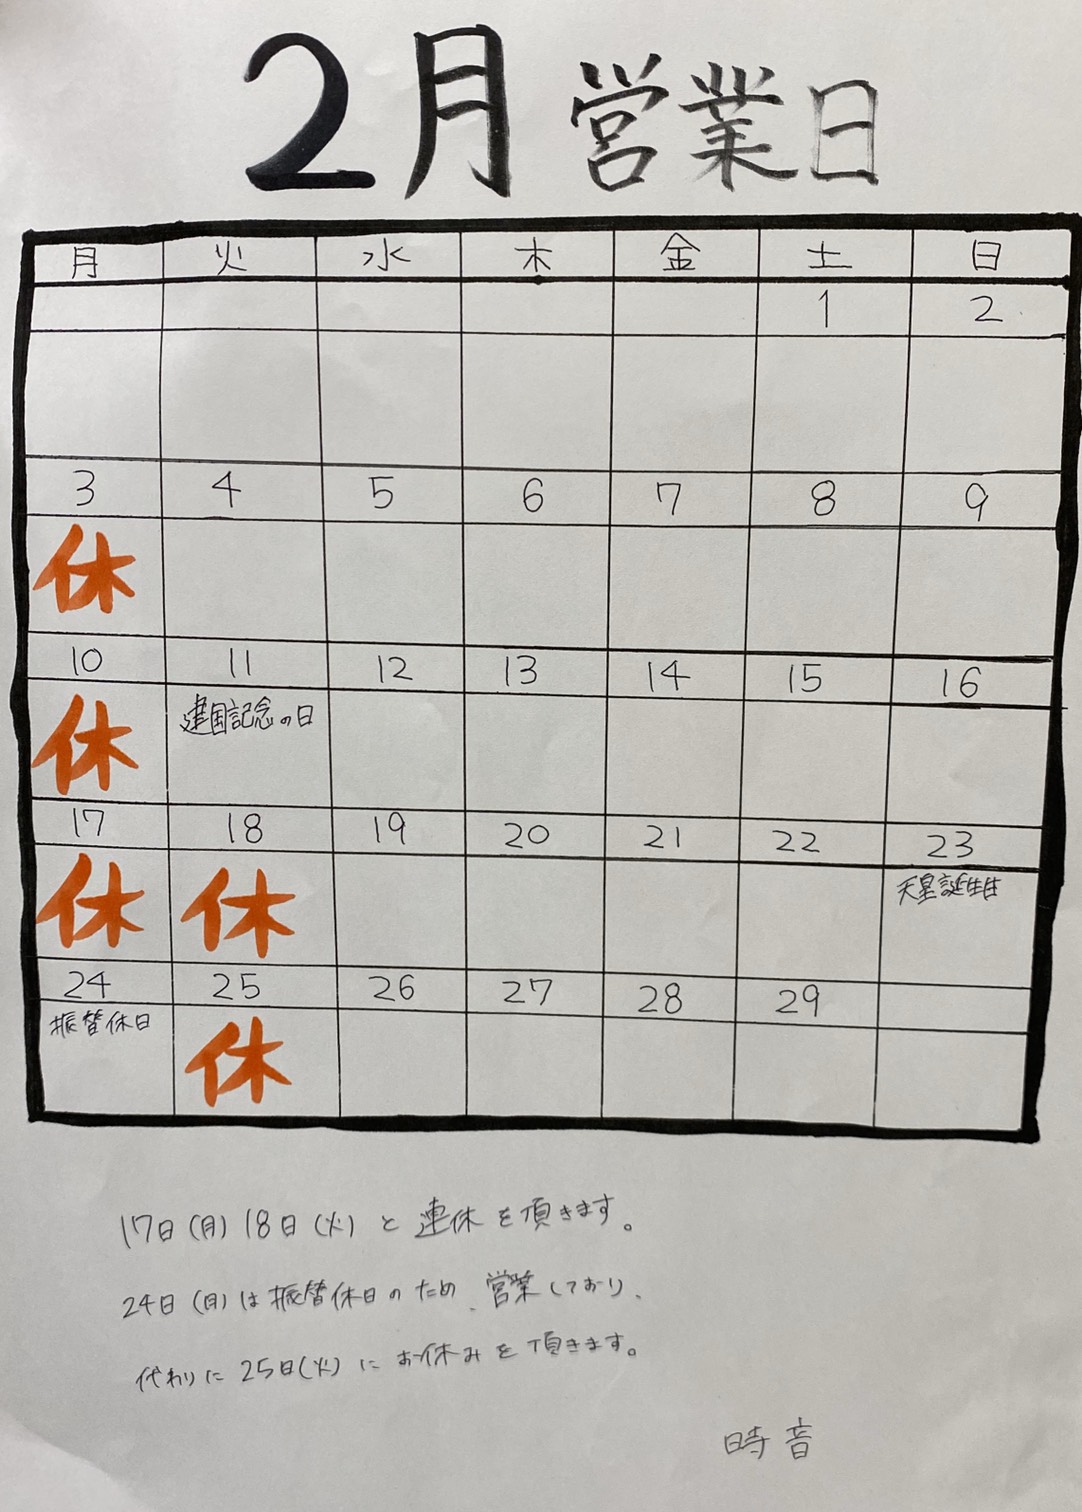 2月 営業日
月 火 水 木 金 土 日
1 2
3 4 5 6 7 8 9
休
10 11 12 13 14 15 16
休 建国記念の日
17 18 19 20 21 22 23
休 休 天皇誕生日
24 25 26 27 28 29
振替休日 休
17日(月) 18日(火) と 連休 を頂きます。
24日(月)は振替休日のため、営業しており、
代わりに 25日(火)に お休みを頂きます。
時音